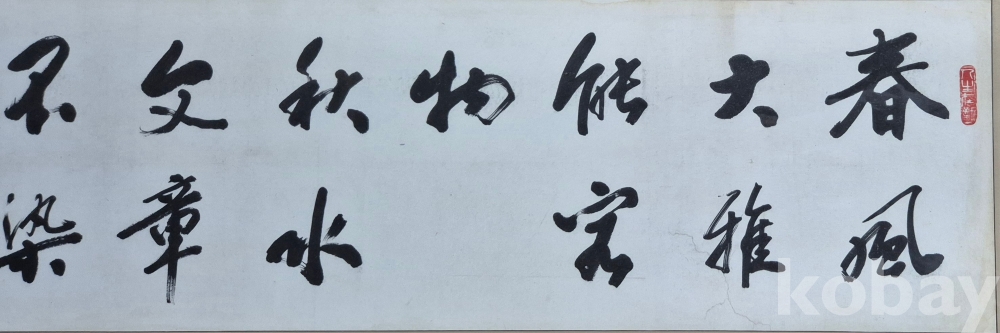 春風
大雅
能容
物
秋水
文章
不染
kobay